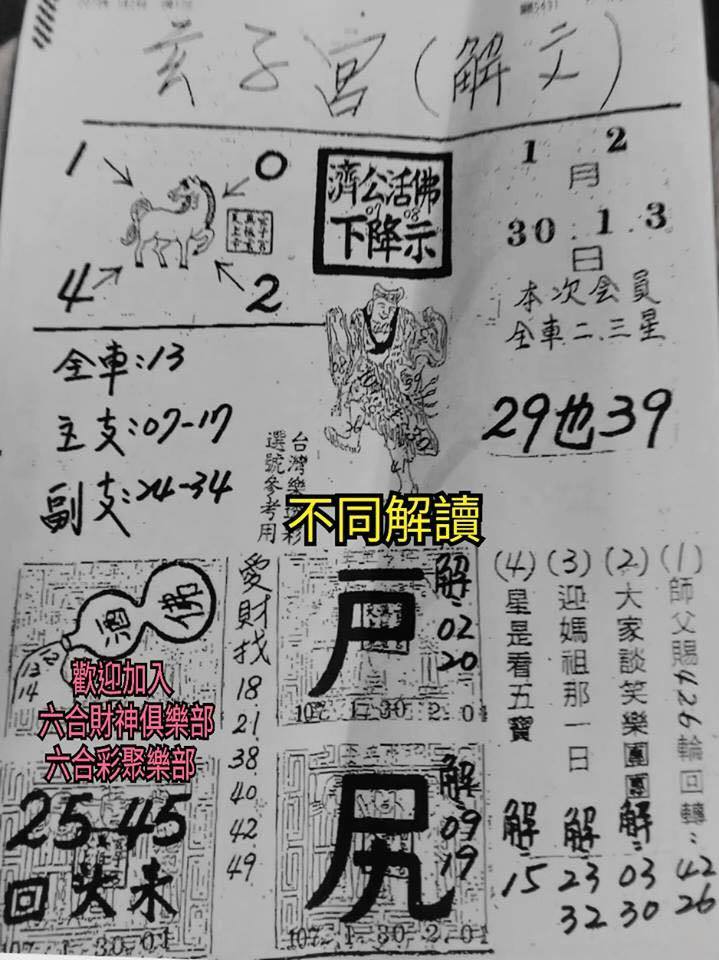 玄子宮(解文)
1 0
4 2
濟公活佛
07 08
下降示
1 2
月
30.1.3
日
本次会員
全車二.三星
29也39
全車:13
主支:07-17
副支:24-34
台灣樂透彩
選號參考用
不同解讀
酒 佛
13
14
歡迎加入
六合財神俱樂部
六合彩聚樂部
愛財找
18
21
38
40
42
49
戶
解:
02
20
107 1 30 2 01
25.45
回头未
107 1 30 01
尻
解:
09
19
107 1 30 2 01
(1)師父賜426輪回轉:
42
26
(2)大家談笑樂團團
解:
03
30
(3)迎媽祖那一日
解:
23
32
(4)星是看五寶
解:
15